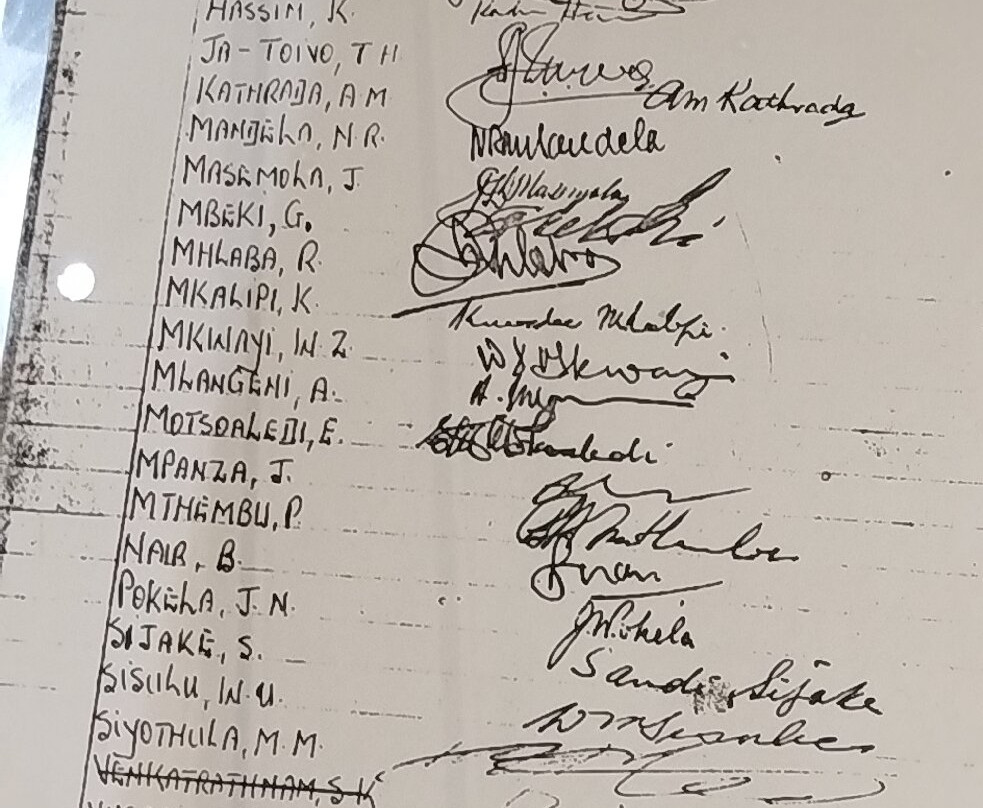 HASSIM, K.
JA-TOIVO, T H
KATHRADA, A M AM Kathrada
MANDELA, N.R. NRMandela
MASEMOLA, J.
MBEKI, G.
MHLABA, R. Mhlaba
MKALIPI, K. Kwedie Mkalipi
MKWAYI, W. Z. W Z Mkwayi
MLANGENI, A. A.
MOTSOALEDI, E. Motsoaledi
MPANZA, J.
MTHEMBU, P.
NAIR, B. B Nair
POKELA, J. N. J.N. Pokela
SIJAKE, S. Sandi Sijake
SISULU, W. U. W M Sisulu
SIYOTHULA, M. M.
VENKATRATHNAM, S K